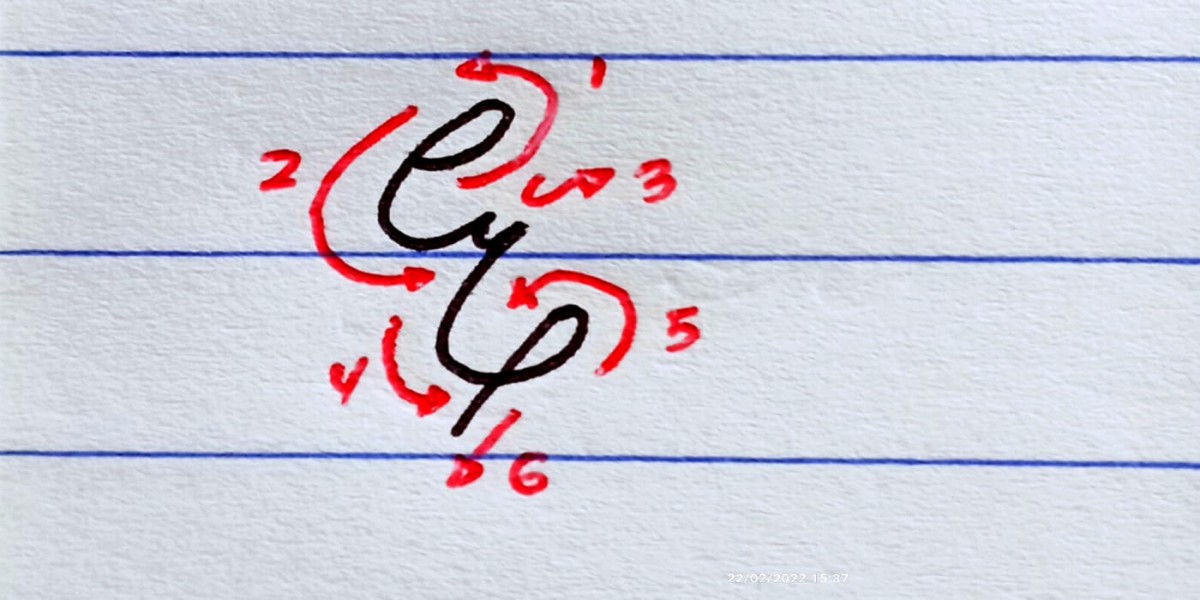 1
2 3
5
4
6
22/02/2022 15:37